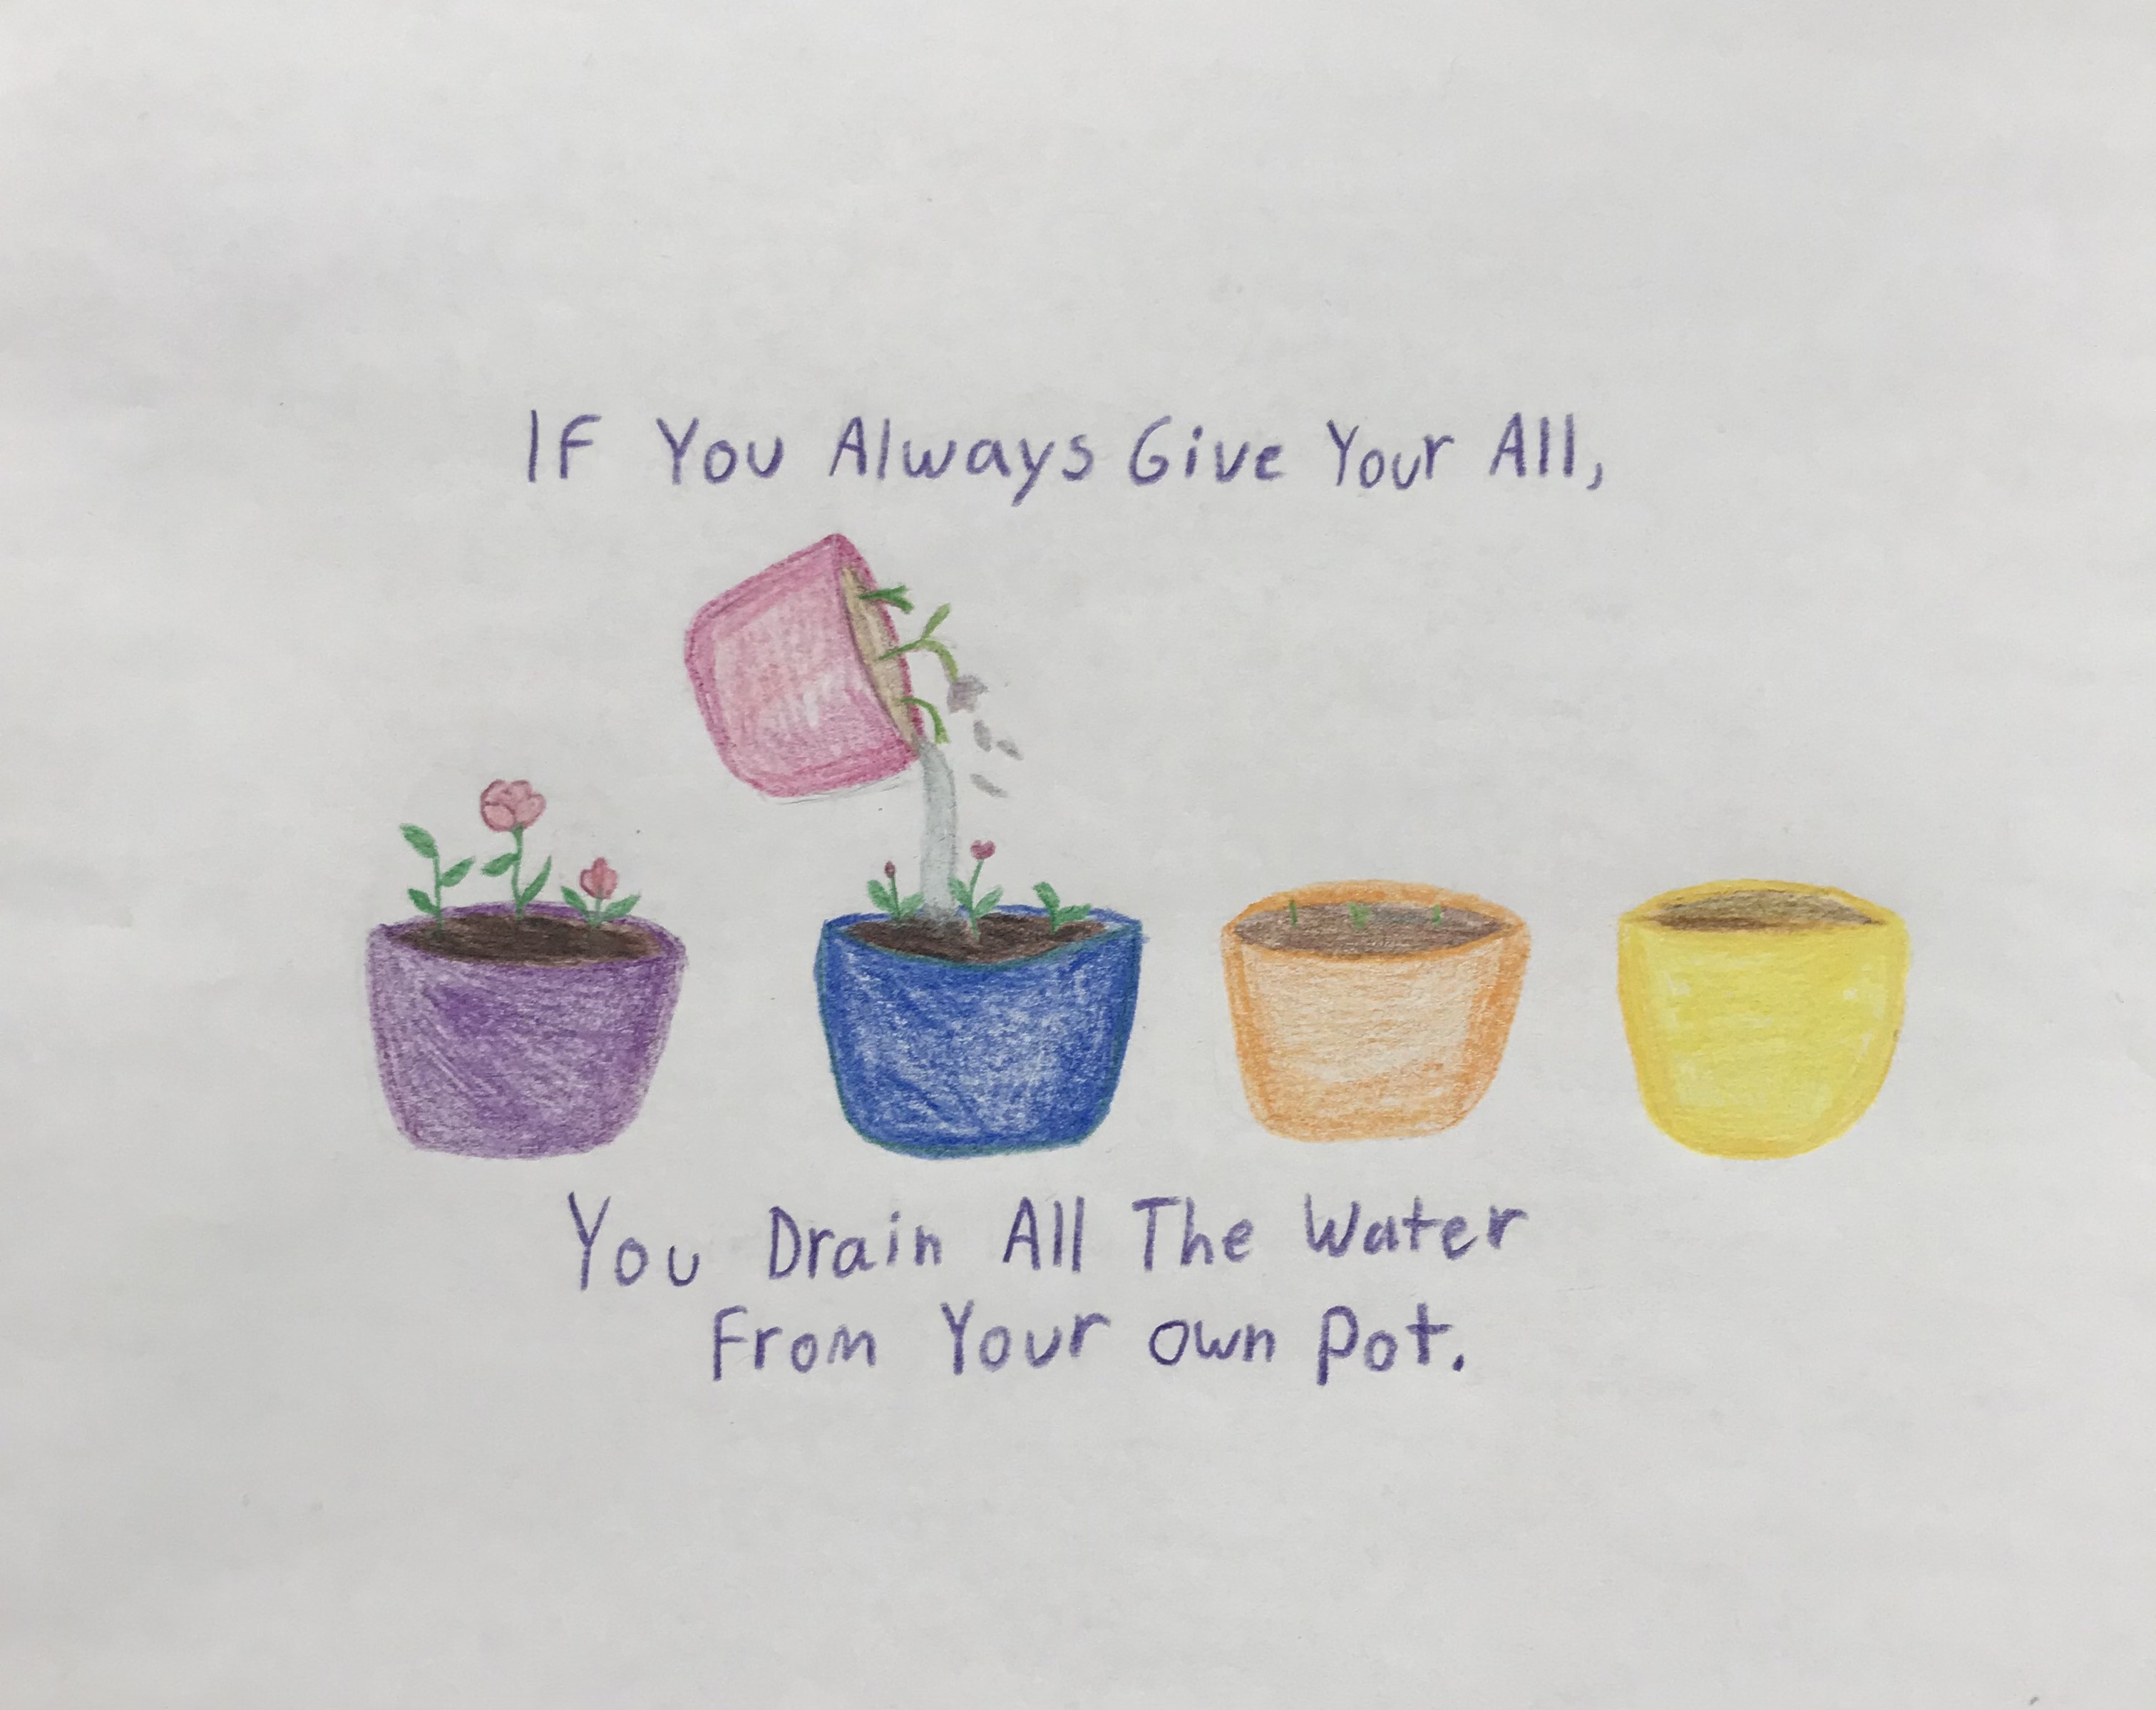 If You Always Give Your All,
You Drain All The Water
From Your own Pot.